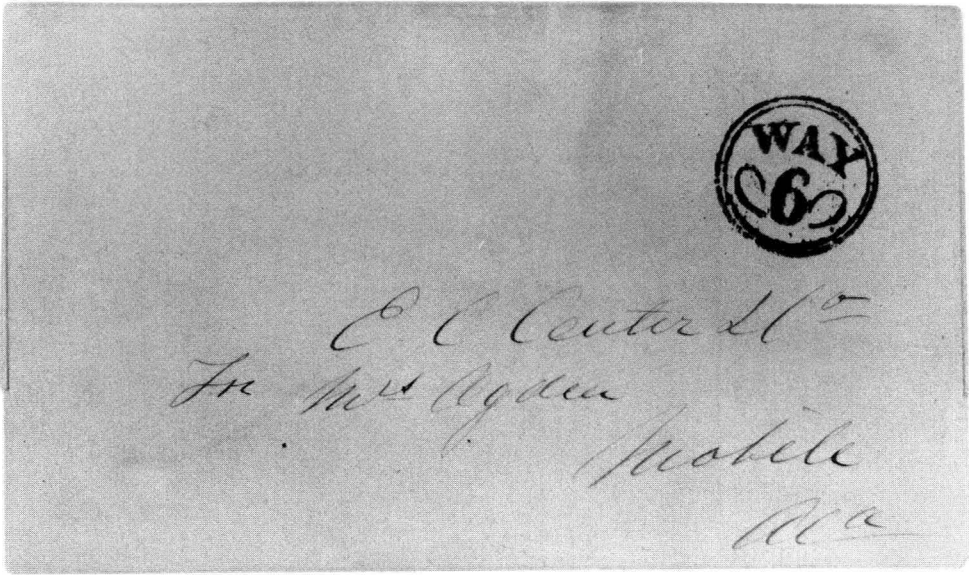 WAY
6
E. C. Center & Co
For Mrs Ogden
Mobile
Ala